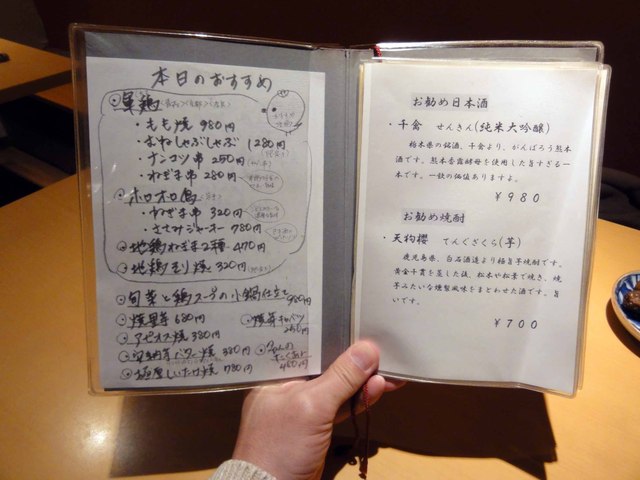 本日のおすすめ
・もも焼 980円
・むねしゃぶしゃぶ 1280円
・ナンコツ串 250円
・ねぎま串 280円
ホロホロ鳥
・ねぎま串 320円
・ささみジャーオー 780円
地鶏ねぎま2種 470円
地鶏そり焼 320円
旬菜と鶏スープの小鍋仕立て 980円
焼里芋 680円
焼芽キャベツ 250円
アピオス焼 380円
バター焼 380円
極厚しいたけ焼 780円
450円
お勧め日本酒
・千禽 せんきん(純米大吟醸)
栃木県の銘酒、千禽より、がんばろう熊本
酒です。熊本香露酵母を使用した旨すぎる一
本です。一飲の価値ありますよ。
¥980
お勧め焼酎
・天狗櫻 てんぐざくら(芋)
鹿児島県、白石酒造より極旨芋焼酎です。
黄金千貫を蒸した後、松本や松葉で焼き、焼
芋みたいな燻製風味をまとわせた酒です。旨
いです。
¥700